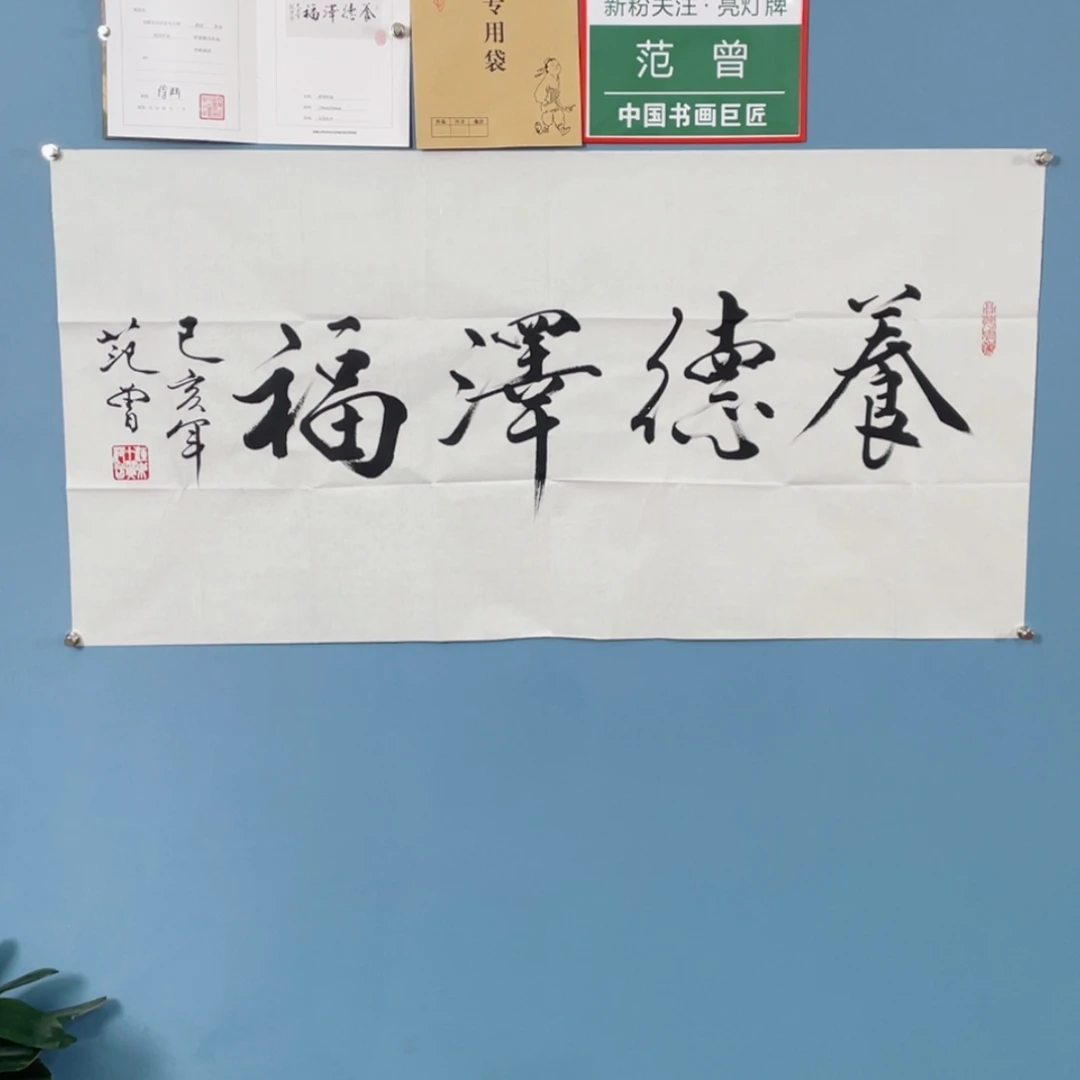 福澤德養
专用袋
新粉关注·亮灯牌
范曾
中国书画巨匠
養德澤福
己亥年
范曾